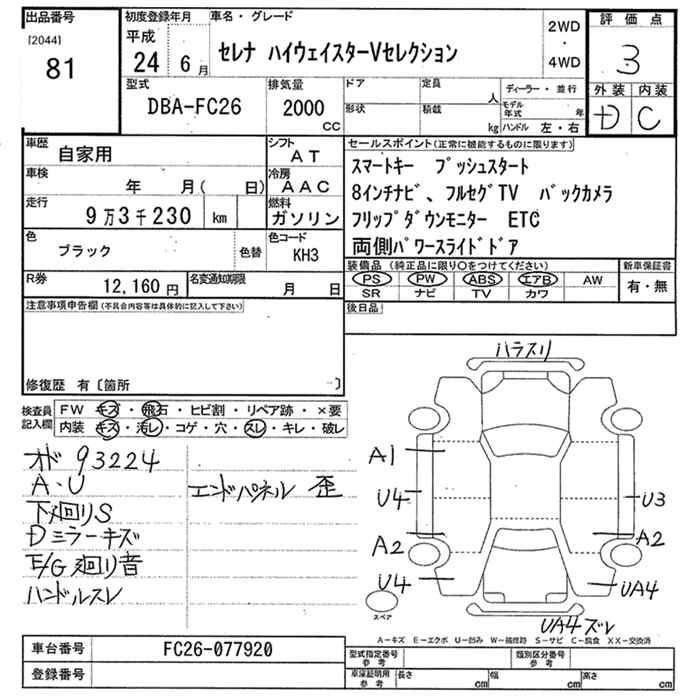 出品番号
[2044]
81
初度登録年月
平成
24 6月
車名・グレード
セレナ ハイウェイスターVセレクション
2WD
・
4WD
評価点
3
外装 内装
D C
型式
DBA-FC26
排気量
2000
CC
ドア
形状
定員
人
積載
kg
ディーラー・並行
モデル年式 年
ハンドル 左・右
車歴
自家用
シフト
AT
車検
年 月( 日)
冷房
AAC
走行
9万3千230 km
燃料
ガソリン
色
ブラック
色替
色コード
KH3
R券
12,160円
名変通知期限
月 日
セールスポイント(正常に機能するものに限ります)
スマートキー プッシュスタート
8インチナビ、フルセグTV バックカメラ
フリップダウンモニター ETC
両側パワースライドドア
装備品(純正品に限り○をつけてください)
新車保証書
PS PW ABS エアB AW
SR ナビ TV カワ
有・無
注意事項申告欄(不具合内容等は具体的に記入して下さい)
後日品
修復歴 有〔箇所 〕
検査員記入欄
FW キズ・飛石・ヒビ割・リペア跡・×要
内装 キズ・汚レ・コゲ・穴・スレ・キレ・破レ
オド 93224
A・U
下廻りS
Dミラーキズ
E/G廻り音
ハンドルスレ
エンドパネル 歪
ハラスリ
A1
U4
U3
A2
A2
U4
UA4
スペア
UA4ズレ
A-キズ E-エクボ U-凹み W-補修跡 S-サビ C-腐食 XX-交換済
車台番号
FC26-077920
登録番号
型式指定番号 参考
類別区分番号 参考
車庫証明用 参考
長さ cm
幅 cm
高さ cm